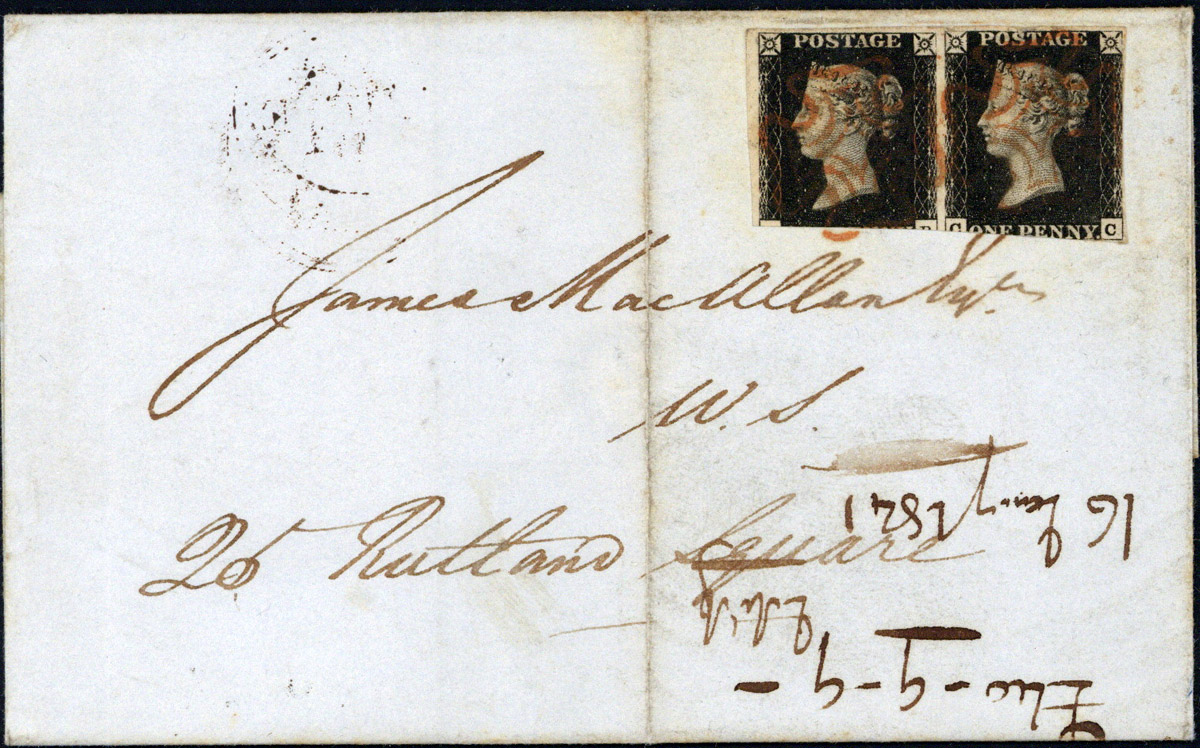 POSTAGE POSTAGE
G ONE PENNY. C
James MacAllan Esqre
W. S.
25 Rutland Square
16 1841
Edinr